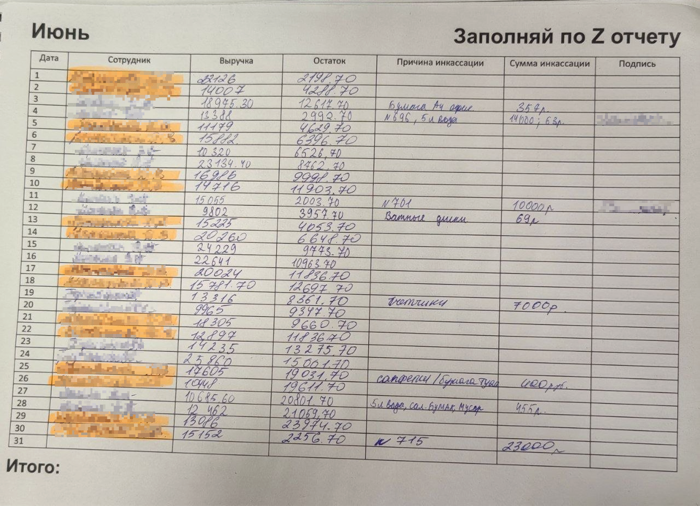 Июнь
Заполняй по Z отчету
Дата Сотрудник Выручка Остаток Причина инкассации Сумма инкассации Подпись
1 22126 2198.70
2 14007 4288.70
3 18975.30 12617.70 Бумага А4 офис 357р
4 13388 2992.70 N696, 5л вода 14000; 53р.
5 11179 4629.70
6 15882 6396.70
7 10320 6526.70
8 23134.40 8762.70
9 16986 9998.70
10 14716 11903.70
11 15065 2003.70 N701 10000р
12 9802 3957.70 Ватные диски 69р
13 15225 4053.70
14 20260 6648.70
15 24229 9773.70
16 22641 10963.70
17 20024 11836.70
18 15781.70 12697.70
19 13316 8361.70 7000р.
20 9965 9347.70
21 18305 9660.70
22 12897 11836.70
23 14235 13275.70
24 25860 15001.70
25 17605 19031.70 салфетки/бумага
26 19611.70
27 10685.60 20801.70 5л вода, 455р.
28 12462 21069.70
29 13086 23974.70
30 15152 2256.70 N 715 23000
31
Итого: